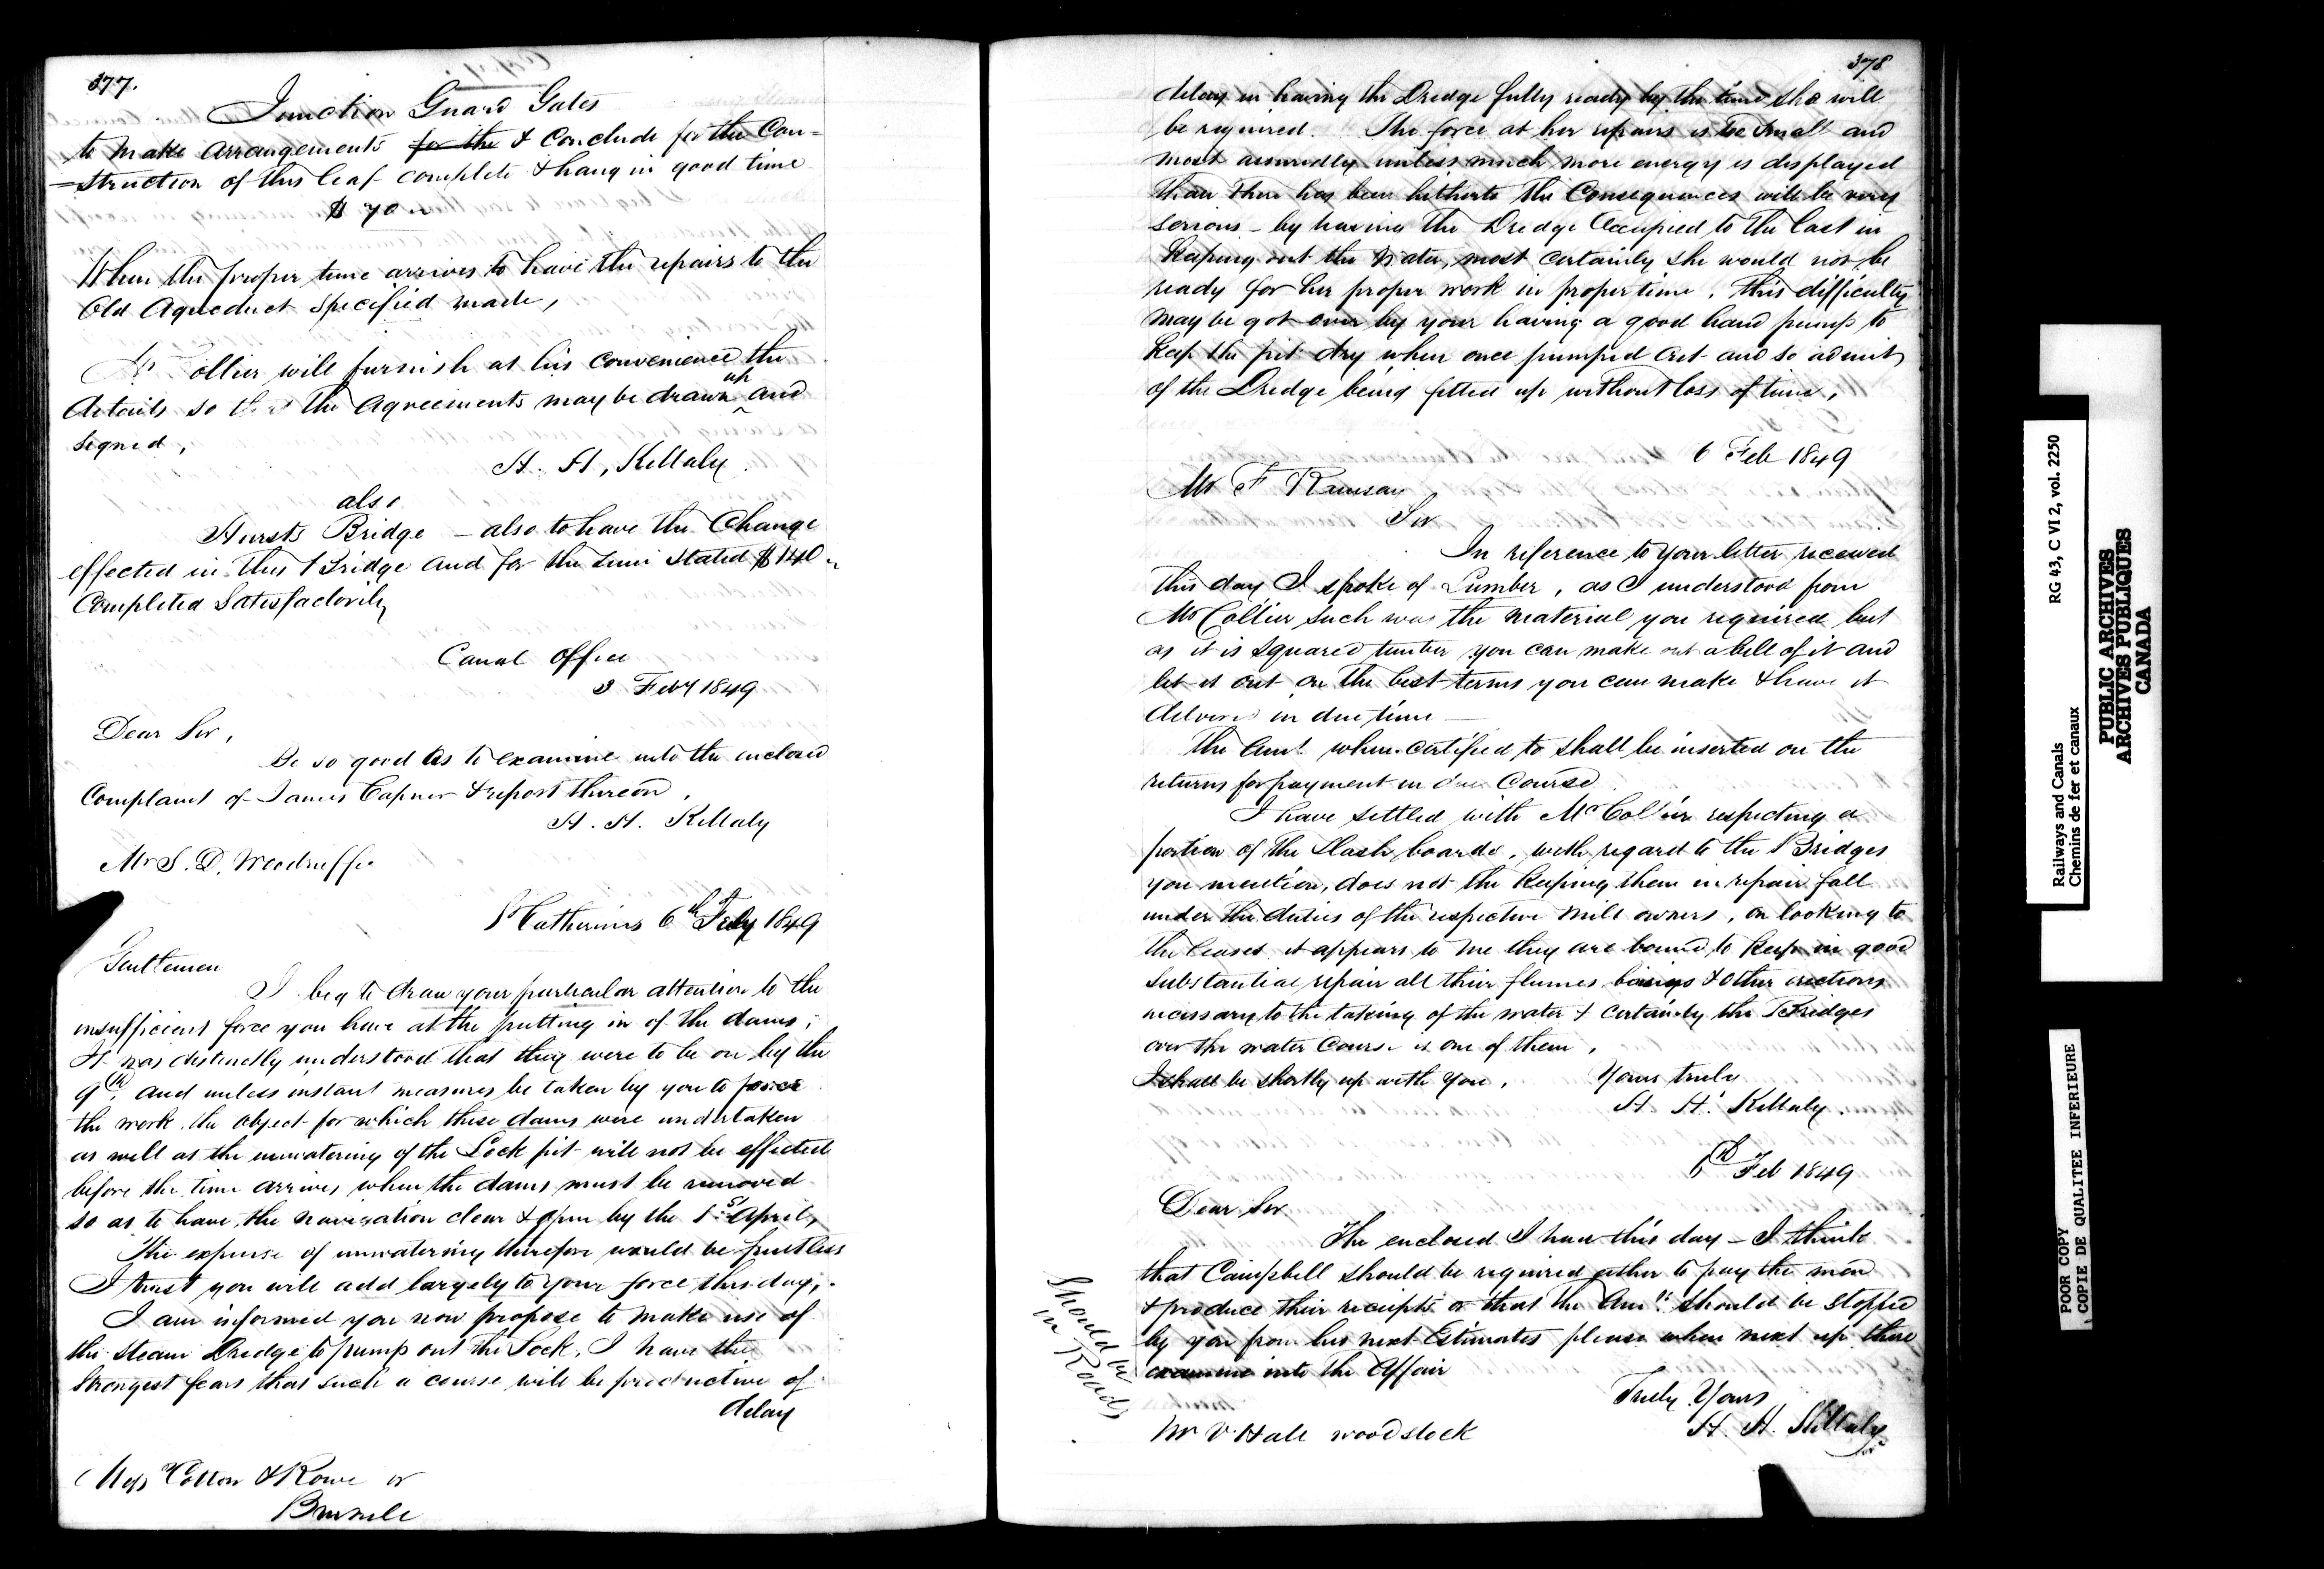 377.
Junction Guard Gates
to make arrangements for the & Conclude for the Con=
=struction of this leaf complete & hang in good time
$ 70 "
When the proper time arrives to have the repairs to the
Old Aqueduct specified made,
Mr Collier will furnish at his convenience the
details so that the Agreements may be drawn up and
signed,
H. H, Killaly
also
Hursts Bridge - also to have the Change
effected in this Bridge and for the sum stated $140 "
Completed Satisfactorily
Canal Office
3 Feby 1849
Dear Sir,
Be so good as to examine into the enclosed
Complaint of James Capner & report thereon,
H. H. Killaly
Mr S. D. Woodruff
St Catherines 6th Feby 1849
Gentlemen
I beg to draw your particular attention to the
insufficient force you have at the putting in of the dams;
It was distinctly understood that they were to be on by the
9th, and unless instant measures be taken by you to force
the work, the object for which these dams were undertaken
as well as the unwatering of the Lock pit will not be effected
before the time arrives when the dams must be removed
so as to have the navigation clear & open by the 1st April,
The expense of unwatering therefore would be fruitless
I trust you will add largely to your force this day,
I am informed you now propose to make use of
the Steam Dredge to pump out the Lock, I have the
strongest fears that such a course will be productive of
delay
Mess Cotton & Rowe or
378
delay in having the Dredge fully ready by the time she will
be required. The force at her repairs is too small and
most assuredly unless much more energy is displayed
than there has been hitherto the Consequences will be very
serious - by having the Dredge Occupied to the last in
Keeping out the Water, most certainly she would not be
ready for her proper work in proper time. This difficulty
may be got over by your having a good hand pump to
Keep the pit dry when once pumped out and so admit
of the Dredge being fitted up without loss of time,
6 Feb 1849
Mr F Ramsay
Sir
In reference to your letter received
this day I spoke of Lumber, as I understood from
Mr Collier such was the material you required but
as it is squared timber you can make out a bill of it and
let it out on the best terms you can make & have it
delivered in due time
The Amt when certified to shall be inserted on the
returns for payment in due Course
I have settled with Mr Collier respecting a
portion of the Slash boards, with regard to the Bridges
you mention, does not the Keeping them in repair fall
under the duties of the respective mill owners, on looking to
the leases it appears to me they are bound to Keep in good
substantial repair all their flumes basins & other erections
necessary to the taking of the water & certainly the Bridges
over the water Course is one of them,
I shall be shortly up with you, Yours truly
H H. Killaly.
6th Feb 1849
Dear Sir
The enclosed I have this day - I think
that Campbell should be required either to pay the men
& produce their receipts or that the Amts. should be stopped
by you from his next Estimates please when next up there
examine into the Affair
Truly Yours
H. H. Killaly
Mr V. Hall Woodstock
Should be
in Roads
RG 43, C VI 2, vol. 2250
Railways and Canals
Chemins de fer et canaux
PUBLIC ARCHIVES
ARCHIVES PUBLIQUES
CANADA
POOR COPY
COPIE DE QUALITEE INFERIEURE